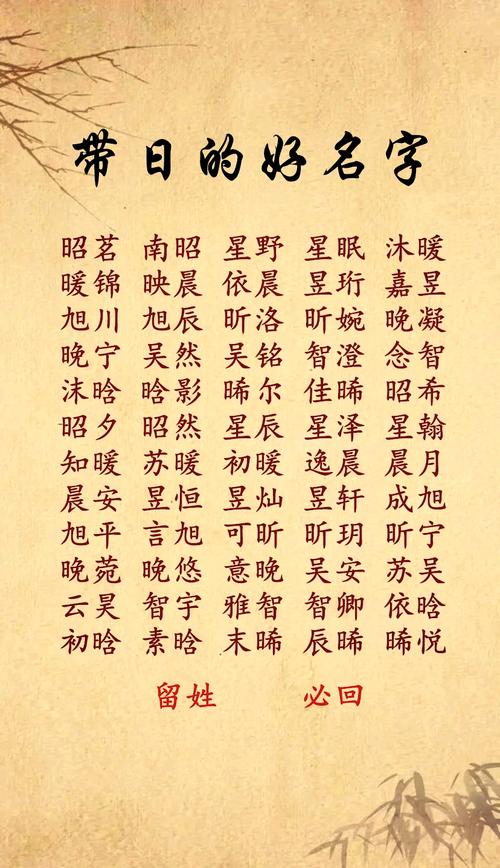 带日的好名字
昭茗 南昭 星野 星眠 沐暖
暖锦 映晨 依晨 昱珩 嘉昱
旭川 旭辰 昕洛 昕婉 晚凝
晚宁 吴然 吴铭 智澄 念智
沫晗 晗影 晞尔 佳晞 昭希
昭夕 昭然 星辰 星泽 星翰
知暖 苏暖 初暖 逸晨 晨月
晨安 昱恒 昱灿 昱轩 成旭
旭平 言旭 可昕 昕玥 昕宁
晚菀 晚悠 意晚 吴安 苏吴
云昊 智宇 雅智 智卿 依晗
初晗 素晗 末晞 辰晞 晞悦
留姓 必回